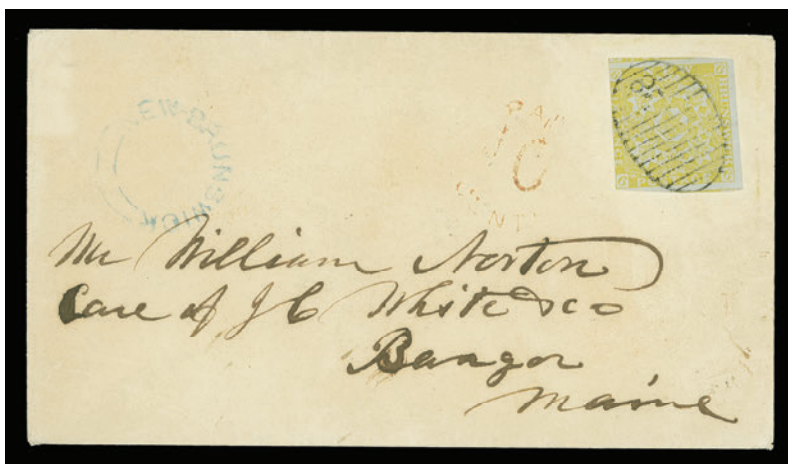 NEW-BRUNSWICK
PAID
10
CENTS
Mr William Norton
Care of J C White & co
Bangor
Maine